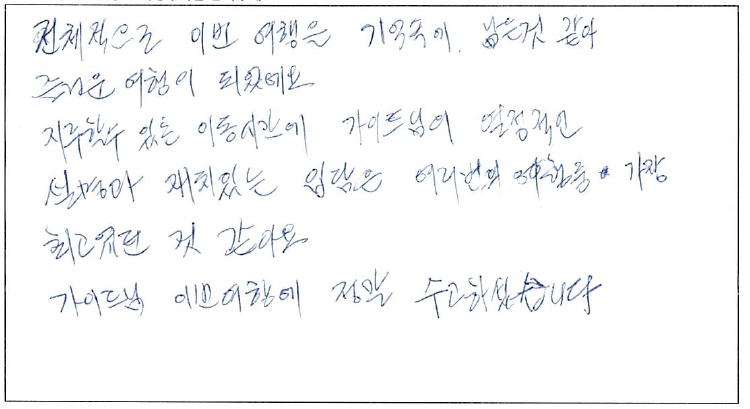 전체적으로 이번 여행은 기억속에 남는것 같아
즐거운 여행이 되었네요
지루할수 있는 이동시간에 가이드님의 열정적인
설명과 재치있는 입담은 여러번의 여행중 가장
최고였던 것 같아요
가이드님 이번여행에 정말 수고하셨습니다